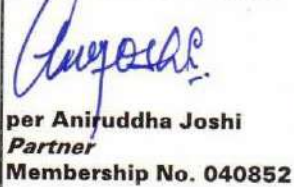 per Aniruddha Joshi
Partner
Membership No. 040852